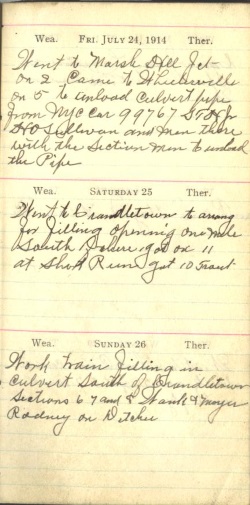 Wea. FRI. JULY 24, 1914 Ther.
Went to Marsh Hill Jct
on 2 Came to
on 5 to unload culvert pipe
from NYC Car 99767
Sullivan and men there
with the Section men to unload
the Pipe
Wea. SATURDAY 25 Ther.
Went to Crandletown to
for filling opening one mile
South got on 11
at Run got 10 Trout
Wea. SUNDAY 26 Ther.
Work train filling in
culvert South of Crandletown
Sections 6 7 and 8
Rodney on